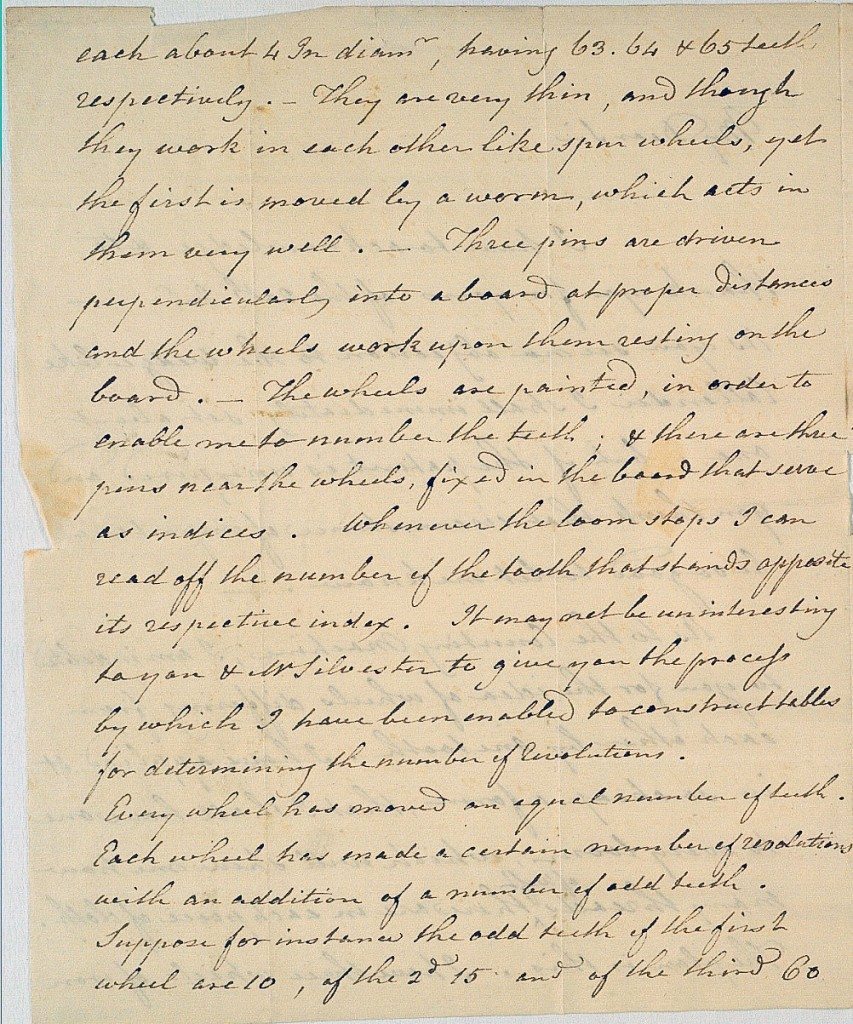 each about 4 In diamr, having 63. 64 & 65 teeth
respectively. — They are very thin, and though
they work in each other like spur wheels, yet
the first is moved by a worm, which acts in
them very well. — Three pins are driven
perpendicularly into a board at proper distances
and the wheels work upon them resting on the
board. — The wheels are painted, in order to
enable me to number the teeth; & there are three
pins near the wheels, fixed in the board that serve
as indices. Whenever the loom stops I can
read off the number of the tooth that stands opposite
its respective index. It may not be uninteresting
to you & Mr Silvester to give you the process
by which I have been enabled to construct tables
for determining the number of revolutions.
Every wheel has moved an equal number of teeth.
Each wheel has made a certain number of revolutions
with an addition of a number of odd teeth.
Suppose for instance the odd teeth of the first
wheel are 10, of the 2d 15 and of the third 60